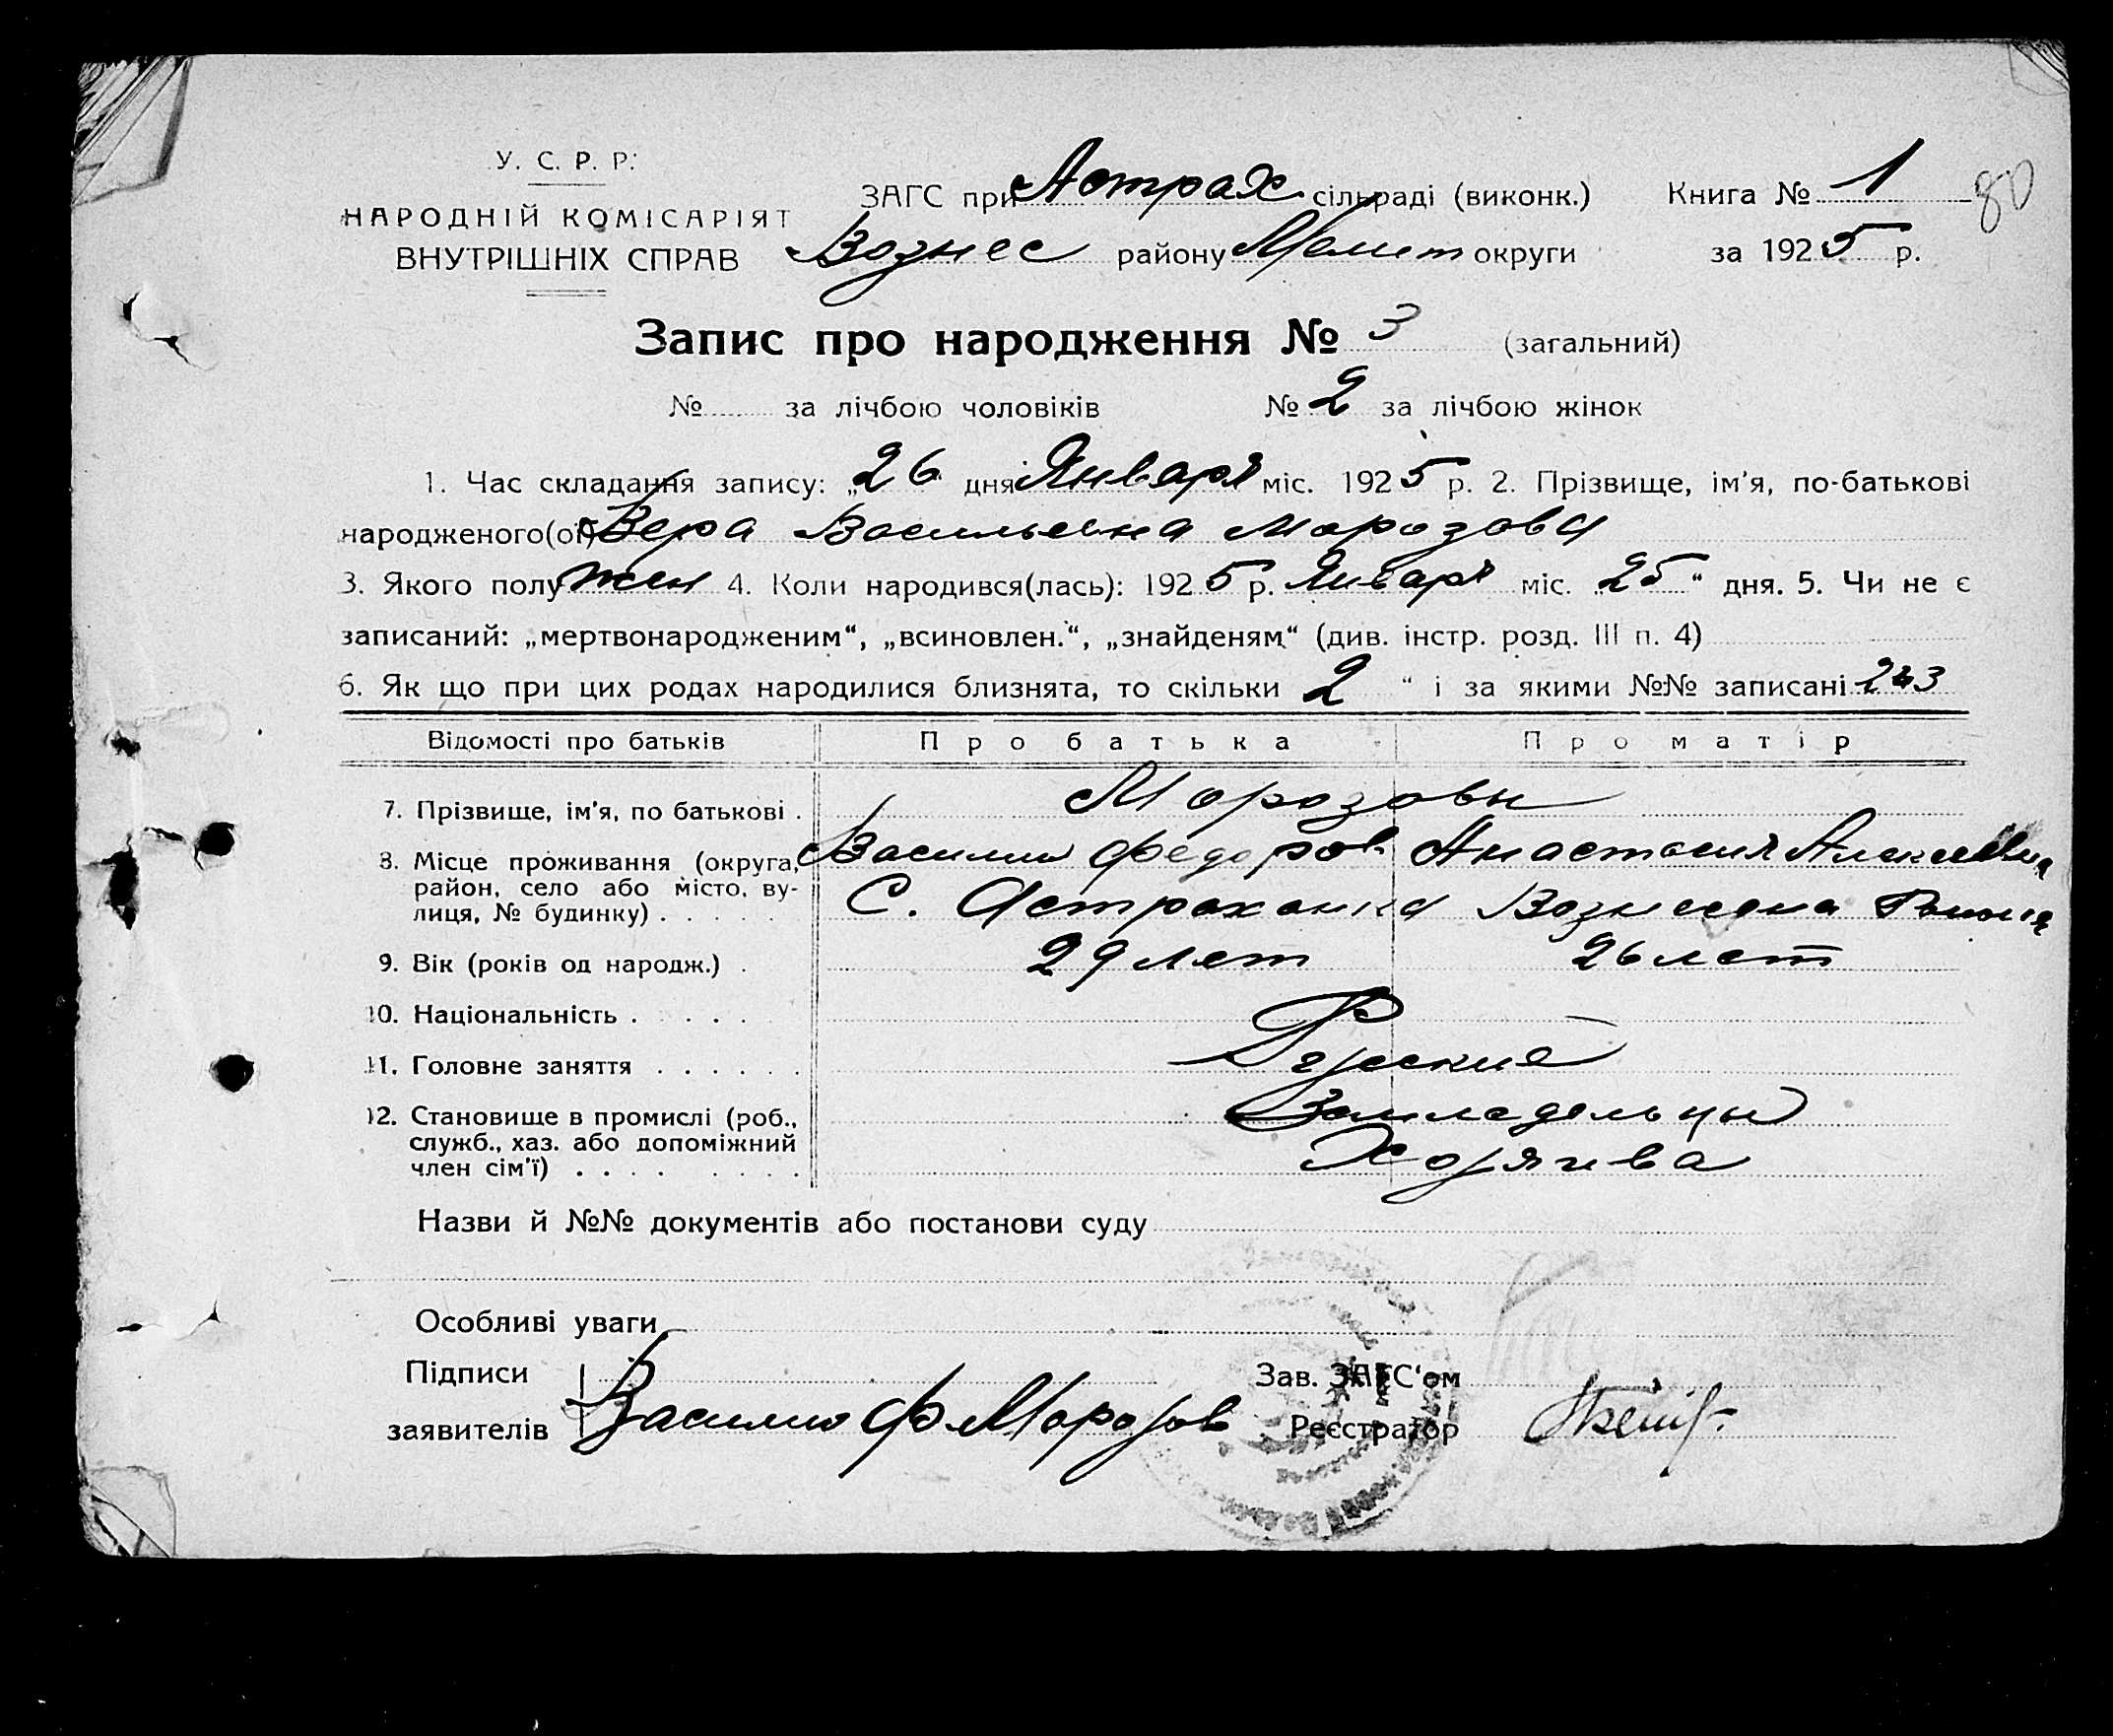 У. С. Р. Р.
НАРОДНІЙ КОМІСАРІЯТ
ВНУТРІШНІХ СПРАВ
ЗАГС при Астрах. сільраді (виконк.) Книга № 1 80
Вознес району Мелит округи за 1925 р.
Запис про народження № 3 (загальний)
№ за лічбою чоловіків № 2 за лічбою жінок
1. Час складання запису: „26 дня Января міс. 1925 р. 2. Прізвище, ім'я, по-батькові
народженого(ої) Вера Васильевна Морозова
3. Якого полу жен 4. Коли народився(лась): 1925 р. Января міс. „25“ дня. 5. Чи не є
записаний: „мертвонародженим“, „всиновлен.“, „знайденям“ (див. інстр. розд. III п. 4)
6. Як що при цих родах народилися близнята, то скільки 2 “ і за якими №№ записані 2 3
Відомості про батьків Про батька Про матір
7. Прізвище, ім'я, по батькові . Морозовы
Василий Федоров Анастасия Алексеевна
8. Місце проживання (округа, район, село або місто, ву-
лиця, № будинку) . . . . . С. Астраханка
9. Вік (років од народж.) . 29 лет 26 лет
10. Національність . . . . . Русские
11. Головне заняття . . . . . . Земледельцы
12. Становище в промислі (роб.,
служб., хаз. або допоміжний
член сім'ї) . . . . . . . .
Назви й №№ документів або постанови суду
Особливі уваги
Підписи Зав. ЗАГС'ом
заявителів Василий Ф Морозов Реєстратор